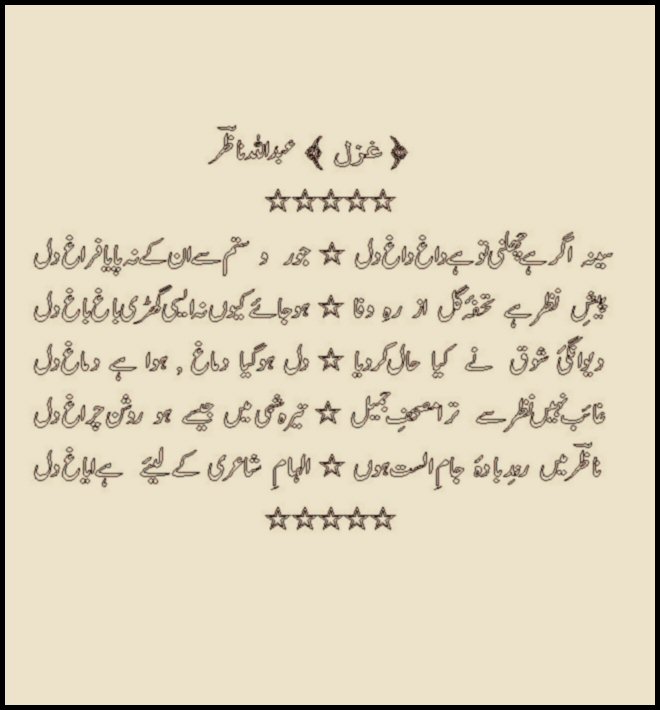 ﴿ غزل ﴾ عبداللہ ناظرؔ
☆☆☆☆☆
سینہ اگر ہے چھلنی تو ہے داغ داغ دل ☆ جور و ستم سے ان کے نہ پایا فراغ دل
پیشِ نظر ہے تحفۂ گل از رہِ وفا ☆ ہوجائے کیوں نہ ایسی گھڑی باغ باغ دل
دیوانگیٔ شوق نے کیا حال کردیا ☆ دل ہوگیا دماغ , ہوا ہے دماغ دل
غائب نہیں نظر سے ترا مصحفِ جمیل ☆ تیرہ شبی میں جیسے ہو روشن چراغ دل
ناظرؔ میں رندِ بادۂ جامِ الست ہوں ☆ الہامِ شاعری کے لیئے ہے ایاغ دل
☆☆☆☆☆